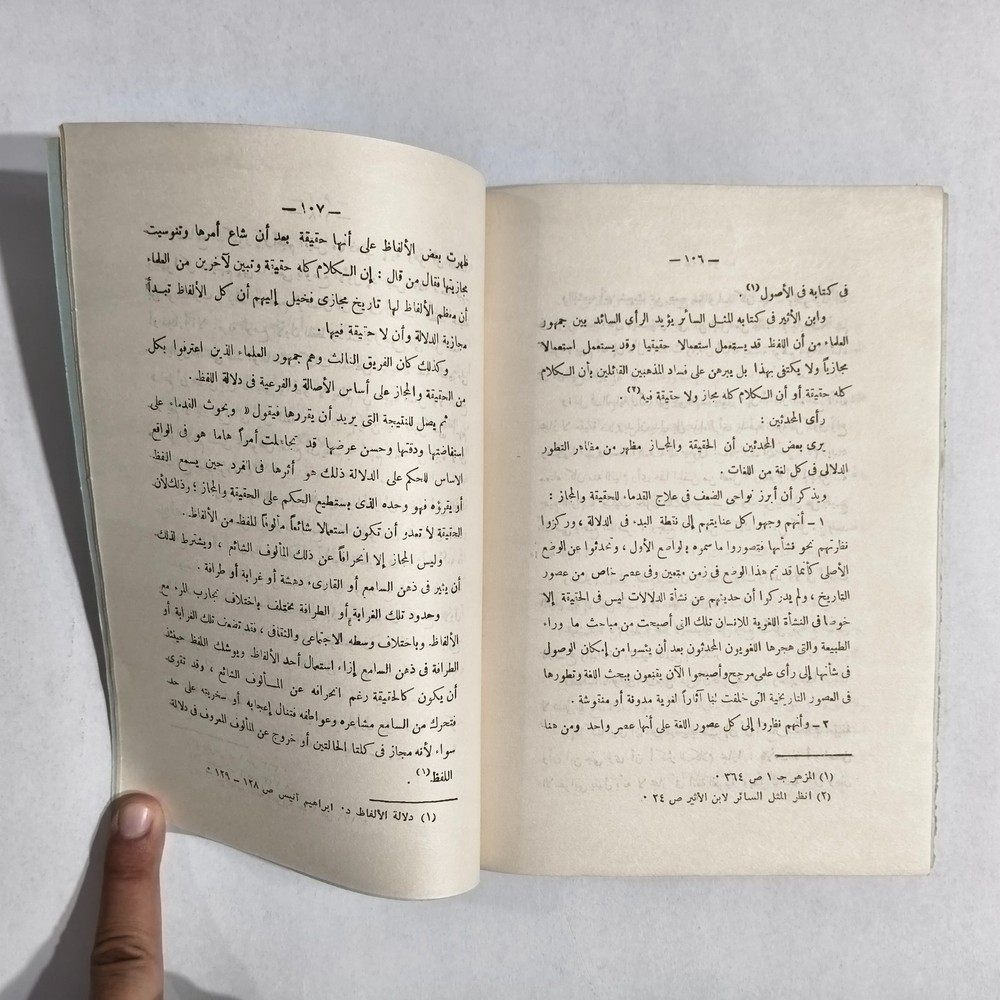 — ١٠٦ —
فى كتابه فى الأصول (١) .
وابن الأثير فى كتابه المثل السائر يؤيد الرأى السائد بين جمهور
العلماء من أن اللفظ قد يستعمل استعمالا حقيقيا وقد يستعمل استعمالا
مجازياً ولا يكتفى بهذا بل يبرهن على فساد المذهبين القائلين بأن الكلام
كله حقيقة أو أن الكلام كله مجاز ولا حقيقة فيه (٢) .
رأى المحدثين :
يرى بعض المحدثين أن الحقيقة والمجاز مظهر من مظاهر التطور
الدلالى فى كل لغة من اللغات .
ويذكر أن أبرز نواحى الضعف فى علاج القدماء للحقيقة والمجاز :
١ — أنهم وجهوا كل عنايتهم إلى نقطة البدء فى الدلالة ، وركزوا
نظرتهم نحو نشأتها فتصوروا ما سموه بالواضع الأول ، وتحدثوا عن الوضع
الأصلى كأنما قد تم هذا الوضع فى زمن متعين وفى عصر خاص من عصور
التاريخ ، ولم يدركوا أن حديثهم عن نشأة الدلالات ليس فى الحقيقة إلا
خوضا فى النشأة اللغوية للانسان تلك التى أصبحت من مباحث ما وراء
الطبيعة والتى هجرها اللغويون المحدثون بعد أن يئسوا من إمكان الوصول
فى شأنها إلى رأى علمى مرجح وأصبحوا الآن يقنعون ببحث اللغة وتطورها
فى العصور التاريخية التى خلفت لنا آثاراً لغوية مدونة أو منقوشة .
٢ — وأنهم نظروا إلى كل عصور اللغة على أنها عصر واحد ومن هنا
(١) المزهر جـ ١ ص ٣٦٤ ٠
(٢) انظر المثل السائر لابن الأثير ص ٢٤ ٠
— ١٠٧ —
ظهرت بعض الألفاظ على أنها حقيقة بعد أن شاع أمرها وتنوسيت
مجازيتها فقال من قال : إن الكلام كله حقيقة وتبين لآخرين من العلماء
أن معظم الألفاظ لها تاريخ مجازى فخيل إليهم أن كل الألفاظ تبدأ
مجازية الدلالة وأن لا حقيقة فيها .
وكذلك كان الفريق الثالث وهم جمهور العلماء الذين اعترفوا بكل
من الحقيقة والمجاز على أساس الأصالة والفرعية فى دلالة اللفظ .
ثم يصل للنتيجة التى يريد أن يقررها فيقول « وبحوث القدماء على
استفاضتها ودقتها وحسن عرضها قد تجاهلت أمراً هاما هو فى الواقع
الاساس للحكم على الدلالة ذلك هو أثرها فى الفرد حين يسمع اللفظ
أو يقرؤه فهو وحده الذى يستطيع الحكم على الحقيقة والمجاز ؛ وذلك لأن
الحقيقة لا تعدو أن تكون استعمالا شائعاً مألوفاً للفظ من الألفاظ .
وليس المجاز إلا انحرافاً عن ذلك المألوف الشائع ، ويشترط لذلك
أن يثير فى ذهن السامع أو القارىء دهشة أو غرابة أو طرافة .
وحدود تلك الغرابة أو الطرافة مختلف باختلاف تجارب المرء مع
الألفاظ وباختلاف وسطه الاجتماعى والثقافى ، فقد تضعف تلك الغرابة أو
الطرافة فى ذهن السامع إزاء استعمال أحد الألفاظ ويوشك اللفظ حينئذ
أن يكون كالحقيقة رغم انحرافه عن المألوف الشائع ، وقد تقوى
فتحرك من السامع مشاعره وعواطفه فتنال إعجابه أو سخريته على حد
سواء لأنه مجاز فى كلتا الحالتين أو خروج عن المألوف المعروف فى دلالة
اللفظ (١) .
(١) دلالة الألفاظ د٠ ابراهيم أنيس ص ١٢٨ — ١٢٩ ٠